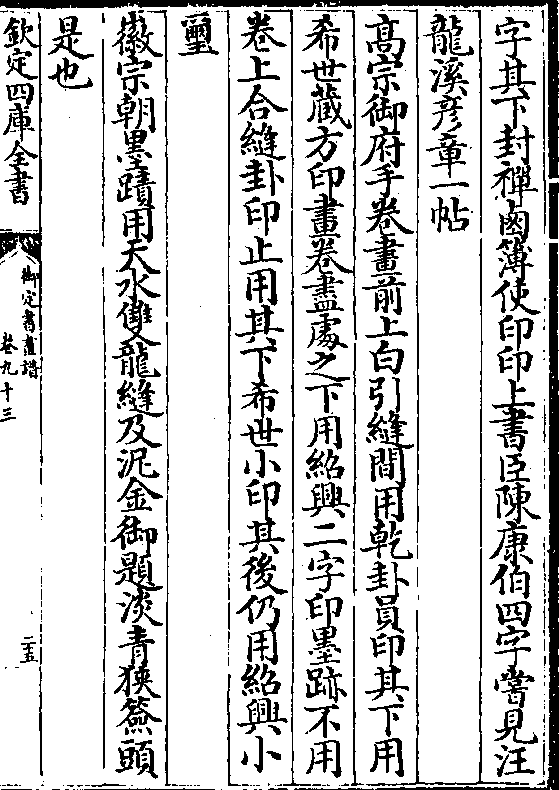 字其下封禪鹵簿使印印上書臣陳康伯四字嘗見汪
龍溪彦章一帖
髙宗御府手卷畫前上白引縫間用乾卦員印其下用
希世藏方印畫卷盡處之下用紹興二字印墨跡不用
卷上合縫卦印止用其下希世小印其後仍用紹興小
璽
徽宗朝墨蹟用天水雙龍縫及泥金御題淡青狹簽頭
是也
欽定四庫全書
御定書畫譜
卷九十三
二五